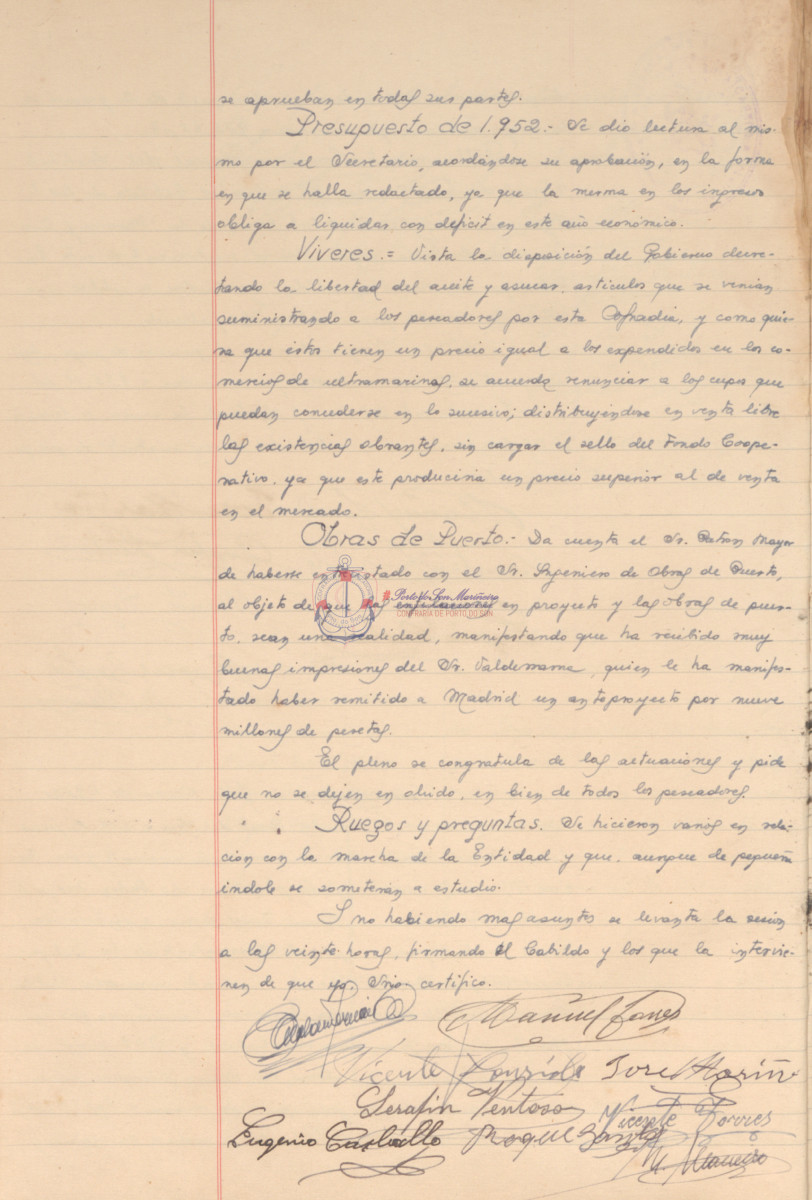 se aprueban en todas sus partes.
Presupuesto de 1.952.- Se dio lectura al mis-
mo por el Secretario, acordándose su aprobación, en la forma
en que se halla redactado, ya que la merma en los ingresos
obliga a liquidar con deficit en este año económico.
Viveres.= Vista la disposición del Gobierno decre-
tando la libertad del aceite y azucar, articulos que se venian
suministrando a los pescadores por esta Cofradia, y como quie-
ra que éstos tienen un precio igual a los expendidos en los co-
mercios de ultramarinos, se acuerda renunciar a los cupos que
puedan concederse en lo sucesivo; distribuyéndose en venta libre
las existencias obrantes, sin cargar el sello del Fondo Coope-
rativo, ya que este produciria un precio superior al de venta
en el mercado.
Obras de Puerto.- Da cuenta el Sr. Patron Mayor
de haberse entrevistado con el Sr. Ingeniero de Obras de Puerto,
al objeto de que las enfilaciones en proyecto y las obras de puer-
to, sean una realidad, manifestando que ha recibido muy
buenas impresiones del Sr. Valderrama, quien le ha manifes-
tado haber remitido a Madrid un antoproyecto por nueve
millones de pesetas.
El pleno se congratula de las actuaciones y pide
que no se dejen en olvido, en bien de todos los pescadores.
Ruegos y preguntas. Se hicieron varios en rela-
cion con la marcha de la Entidad y que, aunque de pequeña
indole se someterán a estudio.
I no habiendo mas asuntos se levanta la sesion
a las veinte horas, firmando el Cabildo y los que la intervie-
nen de que yo, Srio. certifico.
Manuel
Vicente González José Mariño
Serafin Ventoso Vicente Torres
Eugenio Carballo Roque
Porto do Son Mariñeiro
CONFRARÍA DE PORTO DO SON